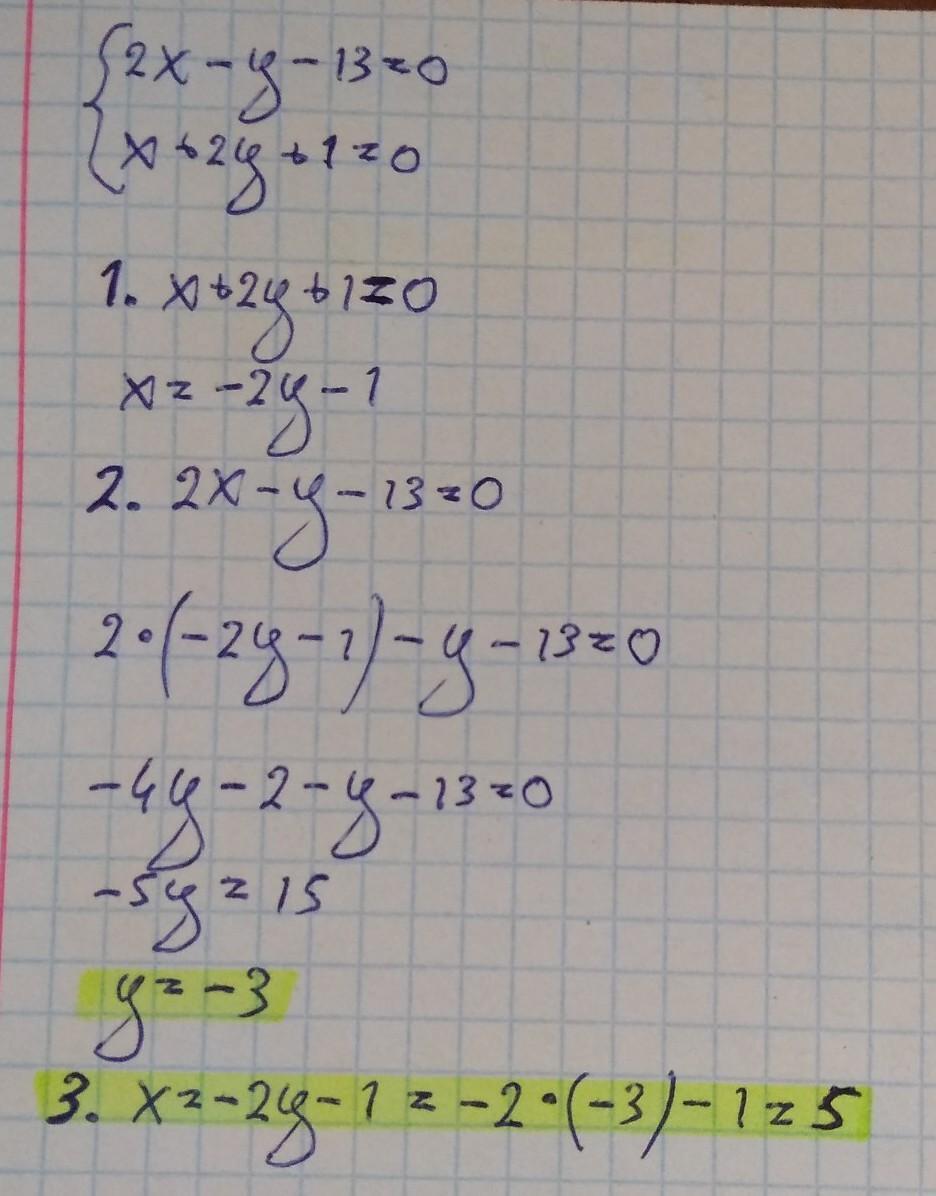 {2x - y - 13 = 0
x + 2y + 1 = 0
1. x + 2y + 1 = 0
x = -2y - 1
2. 2x - y - 13 = 0
2·(-2y - 1) - y - 13 = 0
-4y - 2 - y - 13 = 0
-5y = 15
y = -3
3. x = -2y - 1 = -2·(-3) - 1 = 5